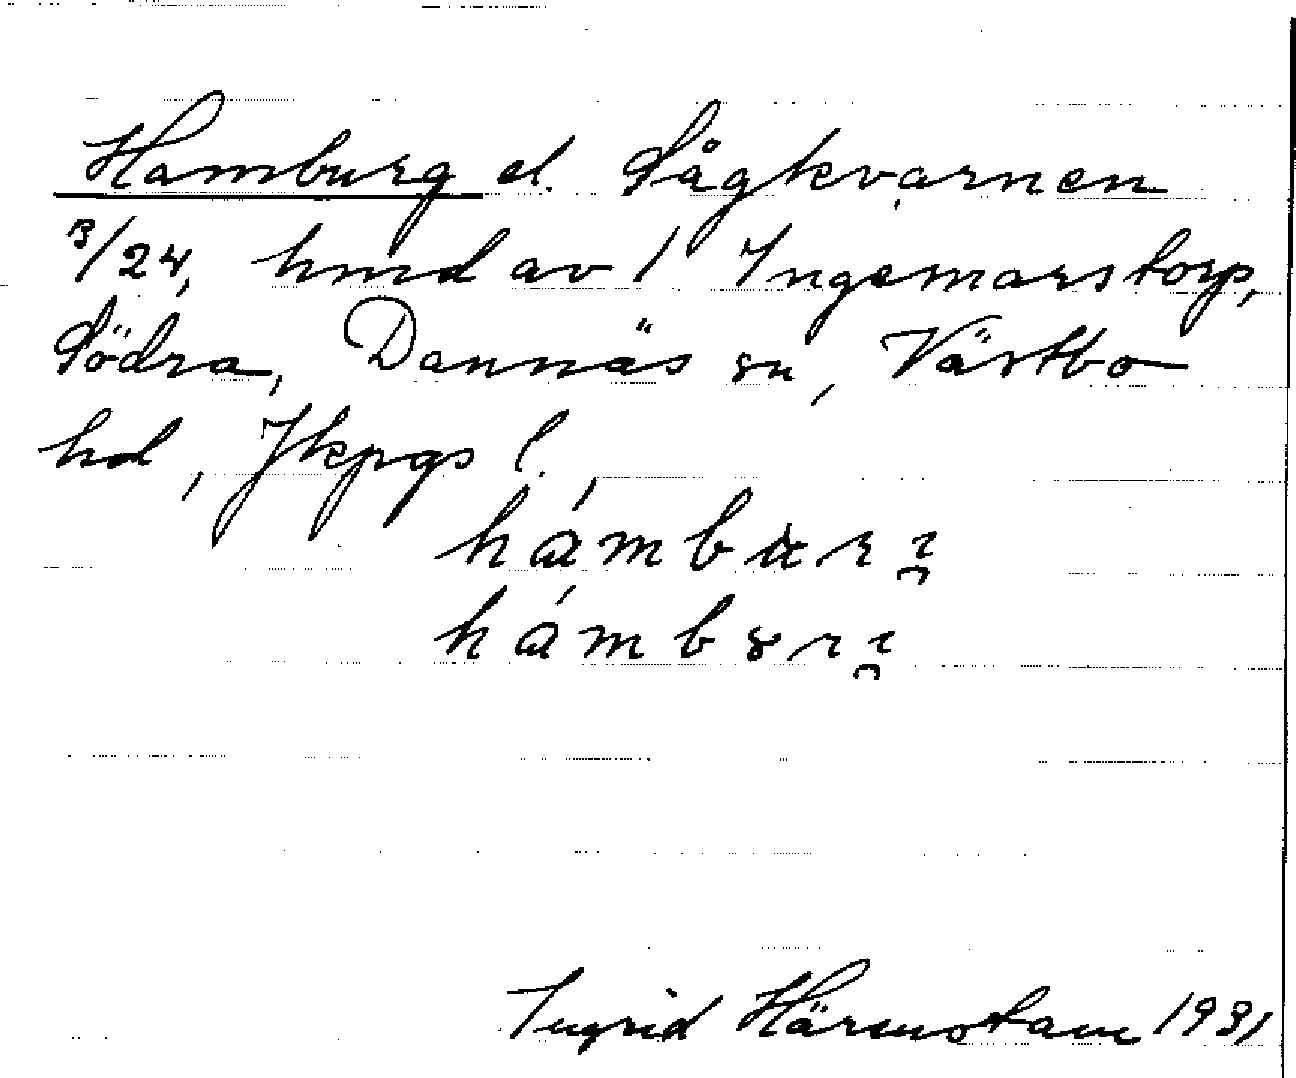 Hamburg el. Sågkvarnen
3/24, hmd av 1 Ingemarstorp,
Södra, Dannäs sn, Västbo
hd, Jkpgs l.,
hámburı̯
hámbɤrı̯
Ingrid Härenstam 1931